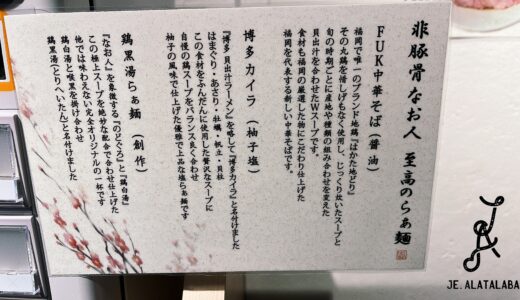 非豚骨なお人 至高のらぁ麺
FUK中華そば（醤油）
福岡で唯一のブランド地鶏「はかた地どり」
その丸鶏を惜しげもなく使用し、じっくり炊いたスープと
旬の時期ごとに産地や種類の組み合わせを変えた
貝出汁を合わせたWスープです。
食材も福岡の厳選した物にこだわり仕上げた
福岡を代表する新しい中華そばです。
博多カイラ（柚子塩）
『博多 貝出汁ラーメン』を略して『博多カイラ』と名付けました
はまぐり・あさり・牡蠣・帆立・貝柱
この食材をふんだんに使用した贅沢なスープに
自慢の鶏スープをバランス良く合わせ
柚子の風味で仕上げた優雅で上品な塩らぁ麺です
鶏黒湯らぁ麺（創作）
『なお人』を象徴する『のどぐろ』と『鶏白湯』
この極上スープを絶妙な配合で合わせ仕上げた
他では味わえない完全オリジナルの一杯です
鶏白湯と喉黒を掛け合わせ
鶏黒湯（とりへいたん）と名付けました
JE.ALATALABA